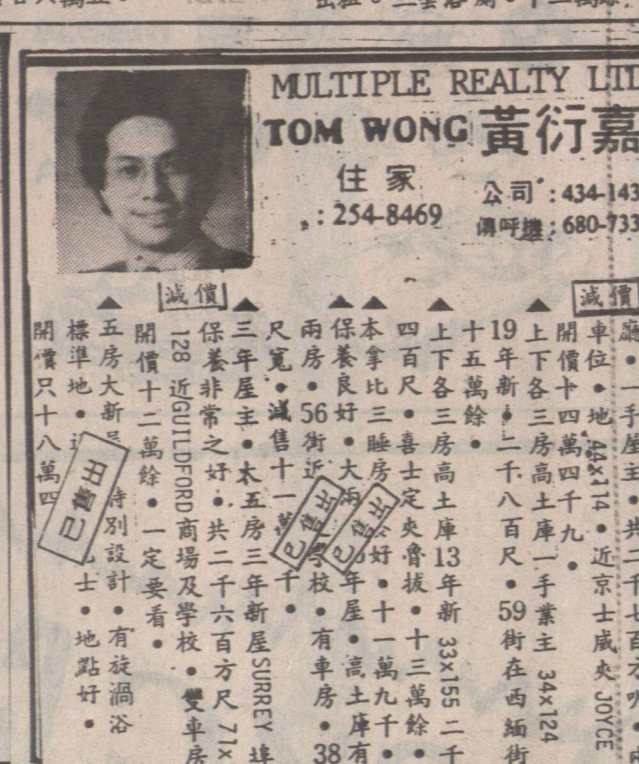 MULTIPLE REALTY LT
TOM WONG 黃衍嘉
住家
: 254-8469
公司 : 434-143
傳呼機 : 680-733
減價
減價
廳 • 一手屋主 共二千七百方呎
車位 • 地 44x114 • 近京士威夾 JOYCE
開價十四萬四千九 •
上下各三房高土庫一手業主 34x124
19年新 • 二千八百尺 • 59街在西緬街
十五萬餘 •
上下各三房高土庫13年新 33x155 二千
四百尺 • 喜士定夾魯拔 • 十三萬餘 •
本拿比三睡房 好 • 十一萬九千 •
保養良好 • 大 年屋 • 高土庫有
兩房 • 56街近 學校 • 有車房 • 38
尺寬 • 減售十一萬 千 •
三年屋主 • 太五房三年新屋 SURREY 埠
保養非常之好 • 共二千六百方尺 71x
128 近GUILDFORD商場及學校 • 雙車房
開價十二萬餘 • 一定要看 •
五房大新屋 特別設計 • 有旋渦浴
標準地 • 士 • 地點好 •
開價只十八萬四
已售出
已售出
已售出